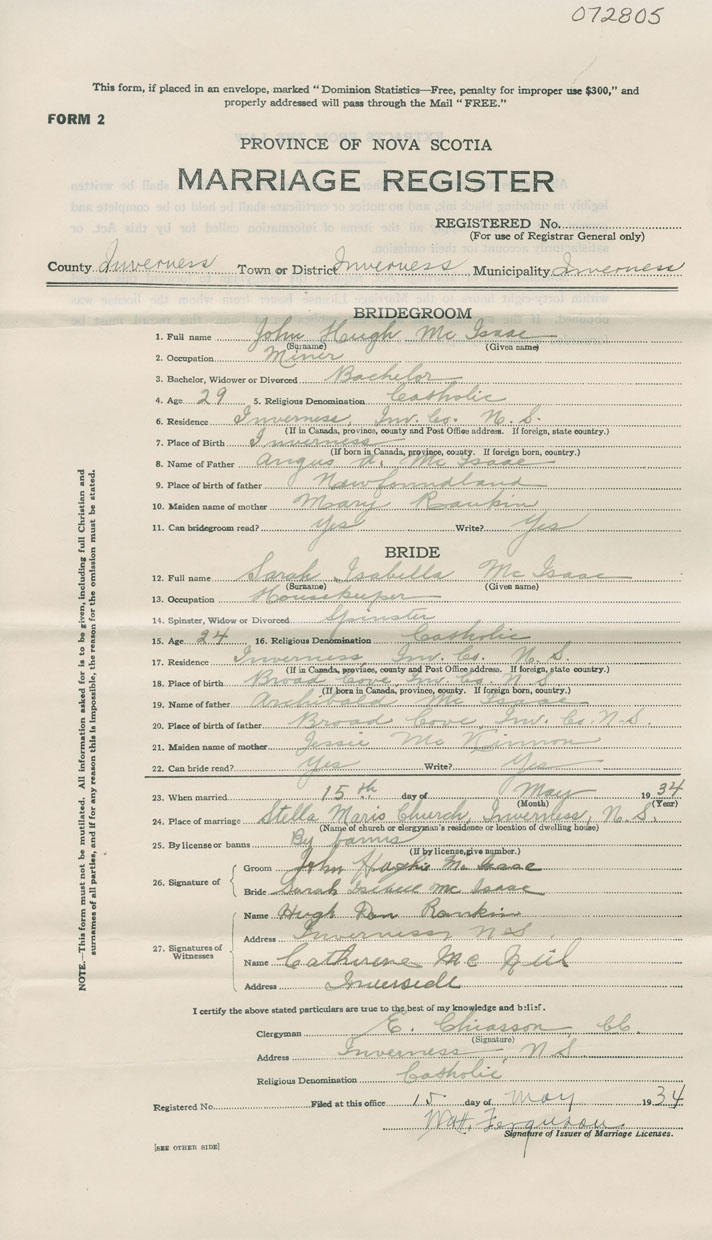 072805
This form, if placed in an envelope, marked "Dominion Statistics—Free, penalty for improper use $300," and
properly addressed will pass through the Mail "FREE."
FORM 2
PROVINCE OF NOVA SCOTIA
MARRIAGE REGISTER
REGISTERED No.
(For use of Registrar General only)
County Inverness Town or District Inverness Municipality Inverness
BRIDEGROOM
1. Full name John Hugh Mc Isaac
(Surname) (Given name)
2. Occupation Miner
3. Bachelor, Widower or Divorced Bachelor
4. Age 29 5. Religious Denomination Catholic
6. Residence Inverness, Inv. Co. N.S.
(If in Canada, province, county and Post Office address. If foreign, state country.)
7. Place of Birth Inverness
(If born in Canada, province, county. If foreign born, country.)
8. Name of Father Angus A. Mc Isaac
9. Place of birth of father Newfoundland
10. Maiden name of mother Mary Rankin
11. Can bridegroom read? Yes Write? Yes
BRIDE
12. Full name Sarah Isabella Mc Isaac
(Surname) (Given name)
13. Occupation Housekeeper
14. Spinster, Widow or Divorced Spinster
15. Age 24 16. Religious Denomination Catholic
17. Residence Inverness Inv. Co. N.S.
(If in Canada, province, county and Post Office address. If foreign, state country.)
18. Place of birth Broad Cove Inv. Co. N.S
(If born in Canada, province, county. If foreign born, country.)
19. Name of father Archibald Mc Isaac
20. Place of birth of father Broad Cove, Inv. Co. N.S.
21. Maiden name of mother Jessie Mc Kinnon
22. Can bride read? Yes Write? Yes
23. When married 15th day of May 1934
(Month) (Year)
24. Place of marriage Stella Maris Church, Inverness, N.S.
(Name of church or clergyman's residence or location of dwelling house)
25. By license or banns By banns
(If by license, give number.)
26. Signature of
Groom John Hughie Mc Isaac
Bride Sarah Isabell Mc Isaac
27. Signatures of Witnesses
Name Hugh Dan Rankin
Address Inverness N.S.
Name Catherine Mc Neil
Address Inverside
I certify the above stated particulars are true to the best of my knowledge and belief.
Clergyman E. Chiasson, CC.
(Signature)
Address Inverness, N.S.
Religious Denomination Catholic
Registered No. Filed at this office 15 day of May 1934
Ferguson
Signature of Issuer of Marriage Licenses.
[SEE OTHER SIDE]
NOTE.—This form must not be mutilated. All information asked for is to be given, including full Christian and
surnames of all parties, and if for any reason this is impossible, the reason for the omission must be stated.